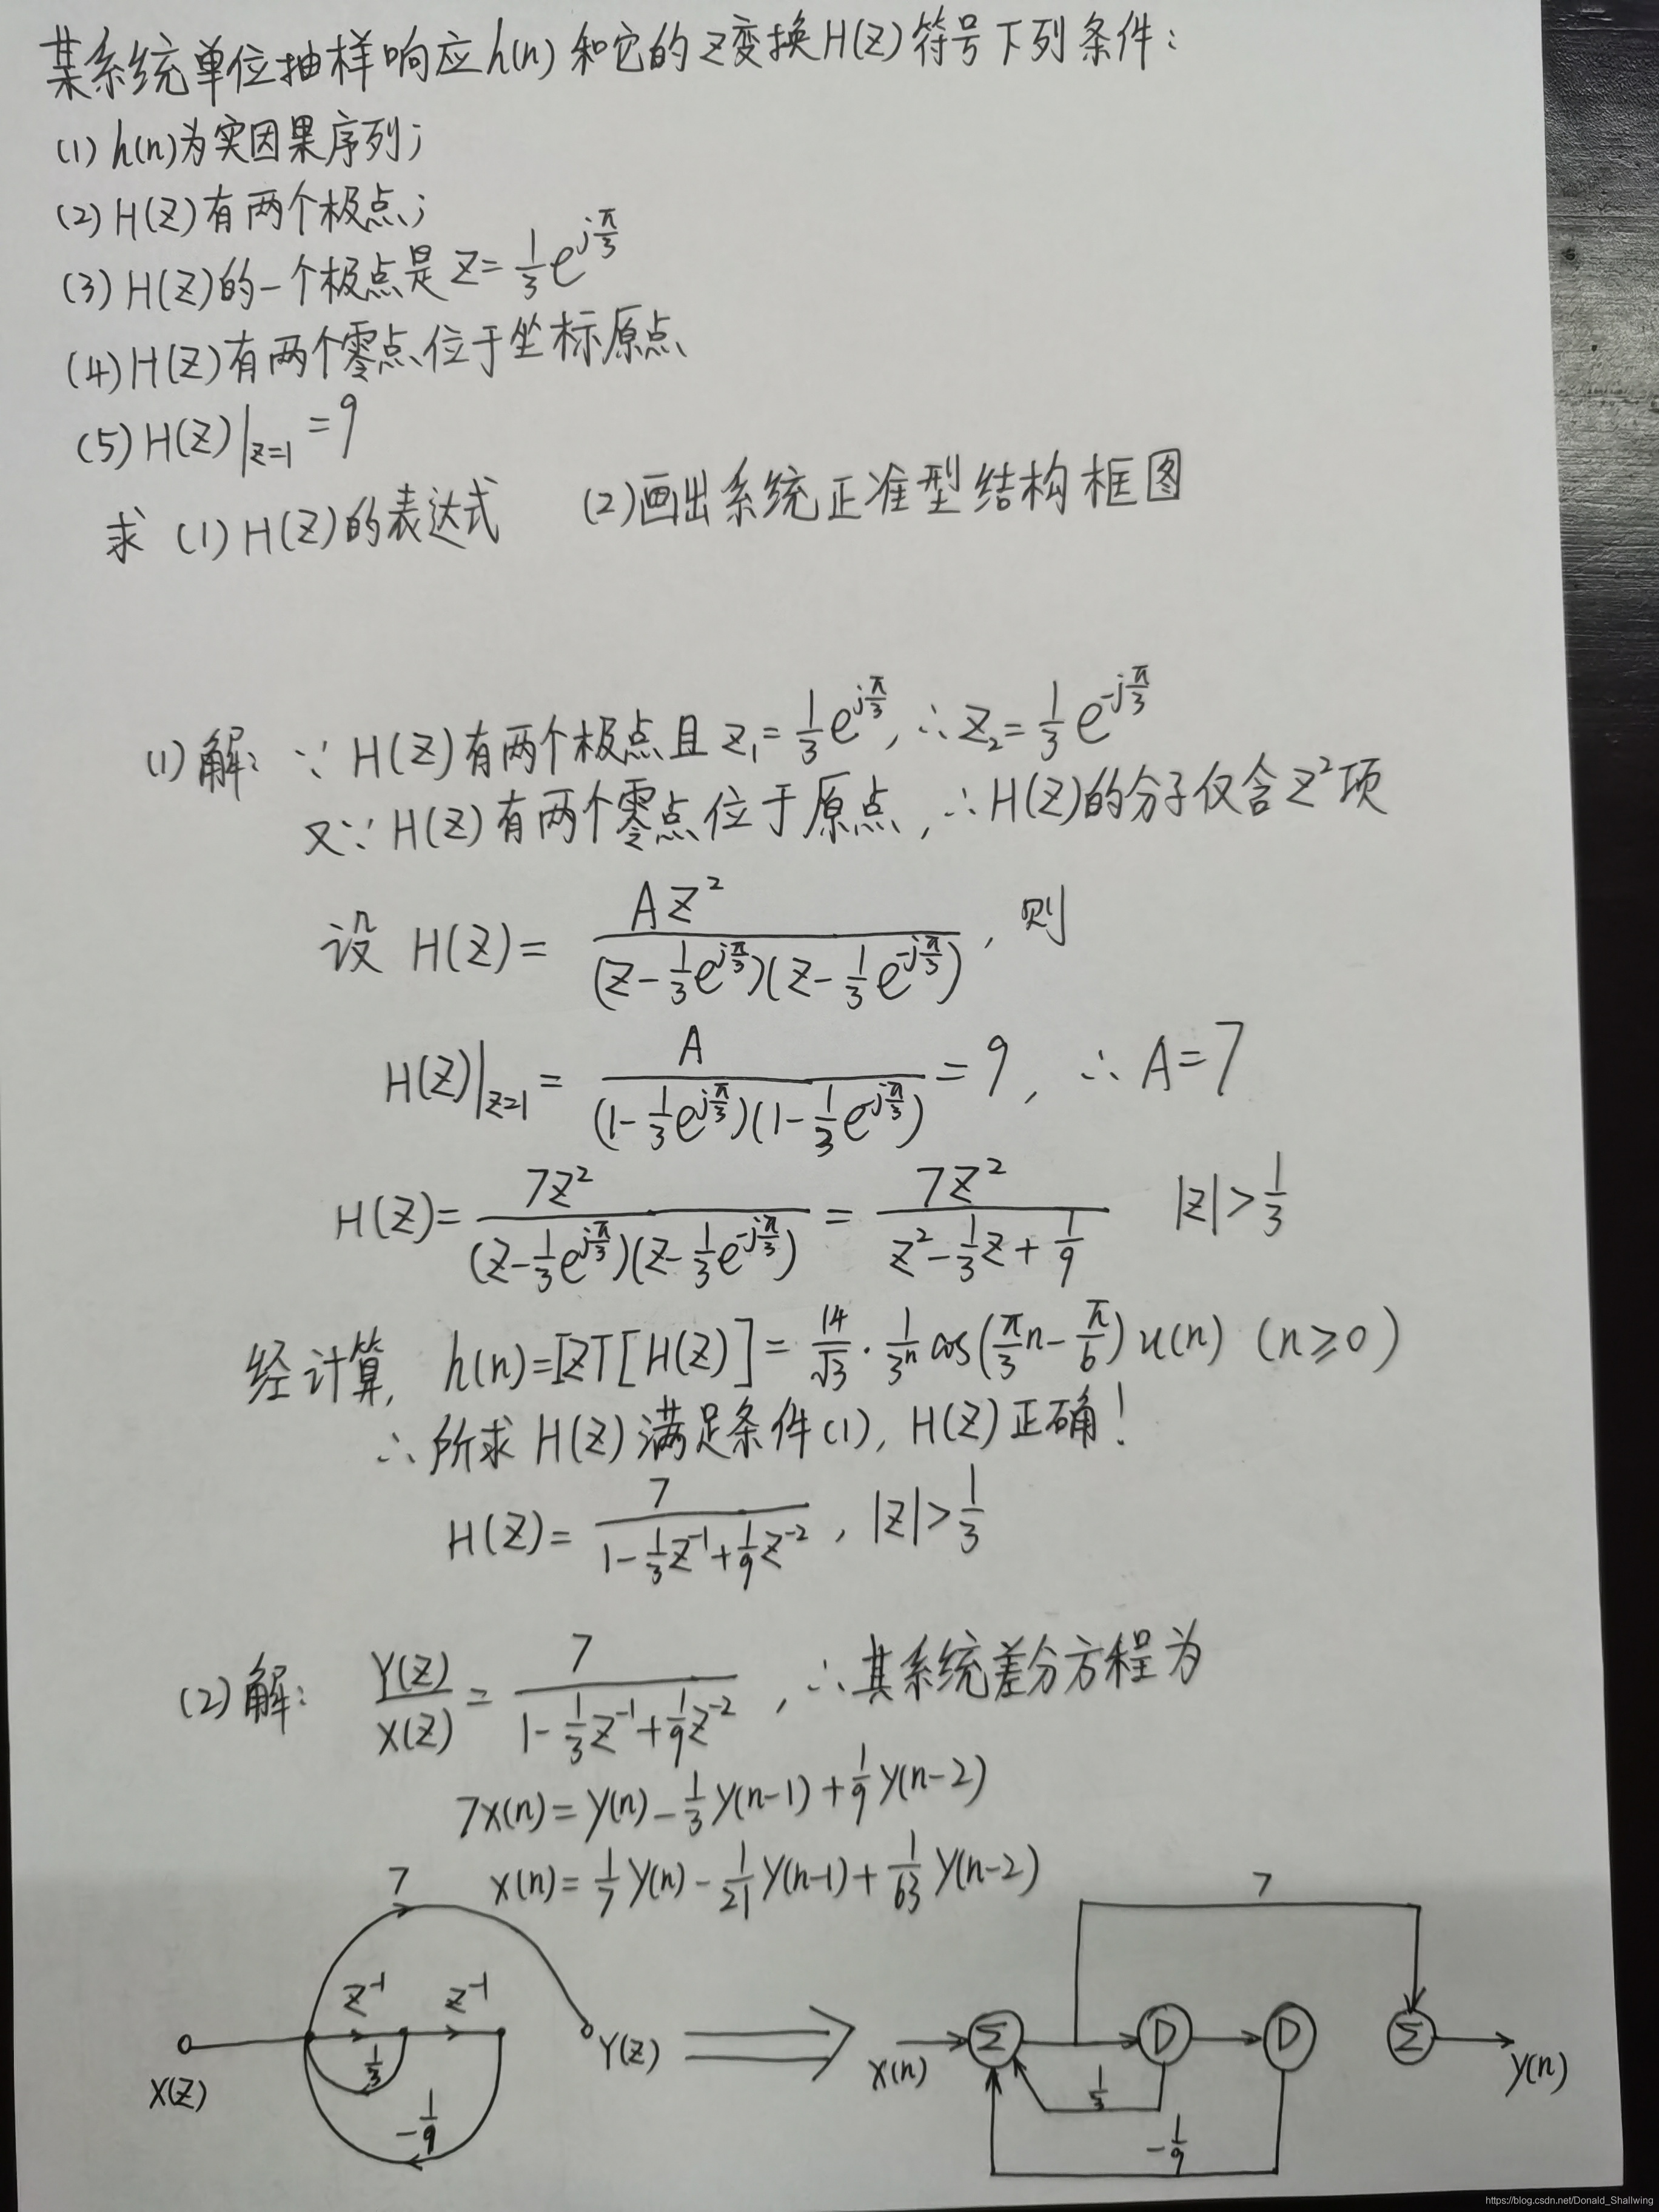 某系统单位抽样响应h(n)和它的Z变换H(Z)符号下列条件:
(1) h(n)为实因果序列;
(2) H(Z)有两个极点;
(3) H(Z)的一个极点是 Z=1/3 e^{jπ/3}
(4) H(Z)有两个零点位于坐标原点
(5) H(Z)|_{z=1}=9
求 (1) H(Z)的表达式 (2)画出系统正准型结构框图
(1)解: ∵ H(Z)有两个极点且 Z₁=1/3 e^{jπ/3}, ∴Z₂=1/3 e^{-jπ/3}
又∵ H(Z)有两个零点位于原点, ∴H(Z)的分子仅含Z²项
设 H(Z)= AZ²/((Z-1/3 e^{jπ/3})(Z-1/3 e^{-jπ/3})), 则
H(Z)|_{z=1}= A/((1-1/3 e^{jπ/3})(1-1/3 e^{-jπ/3}))=9, ∴A=7
H(Z)= 7Z²/((Z-1/3 e^{jπ/3})(Z-1/3 e^{-jπ/3})) = 7Z²/(Z²-1/3 Z+1/9) |Z|>1/3
经计算, h(n)=IZT[H(Z)]= 14/√3 · 1/3ⁿ cos(π/3 n-π/6) u(n) (n≥0)
∴所求 H(Z)满足条件(1), H(Z)正确!
H(Z)= 7/(1-1/3 Z⁻¹+1/9 Z⁻²), |Z|>1/3
(2)解: Y(Z)/X(Z) = 7/(1-1/3 Z⁻¹+1/9 Z⁻²), ∴其系统差分方程为
7X(n)=Y(n)-1/3 Y(n-1)+1/9 Y(n-2)
X(n)=1/7 Y(n)-1/21 Y(n-1)+1/63 Y(n-2)
7
Z⁻¹ Z⁻¹
1/3
-1/9
X(Z)
Y(Z)
7
X(n)
Σ D D Σ
y(n)
1/3
-1/9
https://blog.csdn.net/Donald_Shallwing